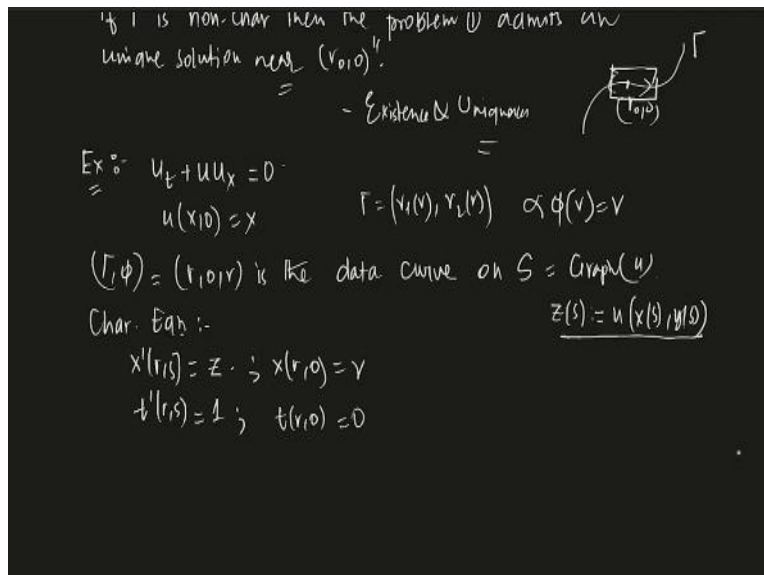 "If Γ is non-char then the problem ① admits an
unique solution near (r₀,0)".
- Existence & Uniqueness
Γ
(r₀,0)
Ex :- u_t + uu_x = 0
u(x,0) = x
Γ = (γ₁(r), γ₂(r)) & φ(r) = r
(Γ,φ) = (r,0,r) is the data curve on S = Graph(u)
Char. Eqn :-
z(s) := u(x(s), y(s))
x'(r,s) = z ; x(r,0) = r
t'(r,s) = 1 ; t(r,0) = 0